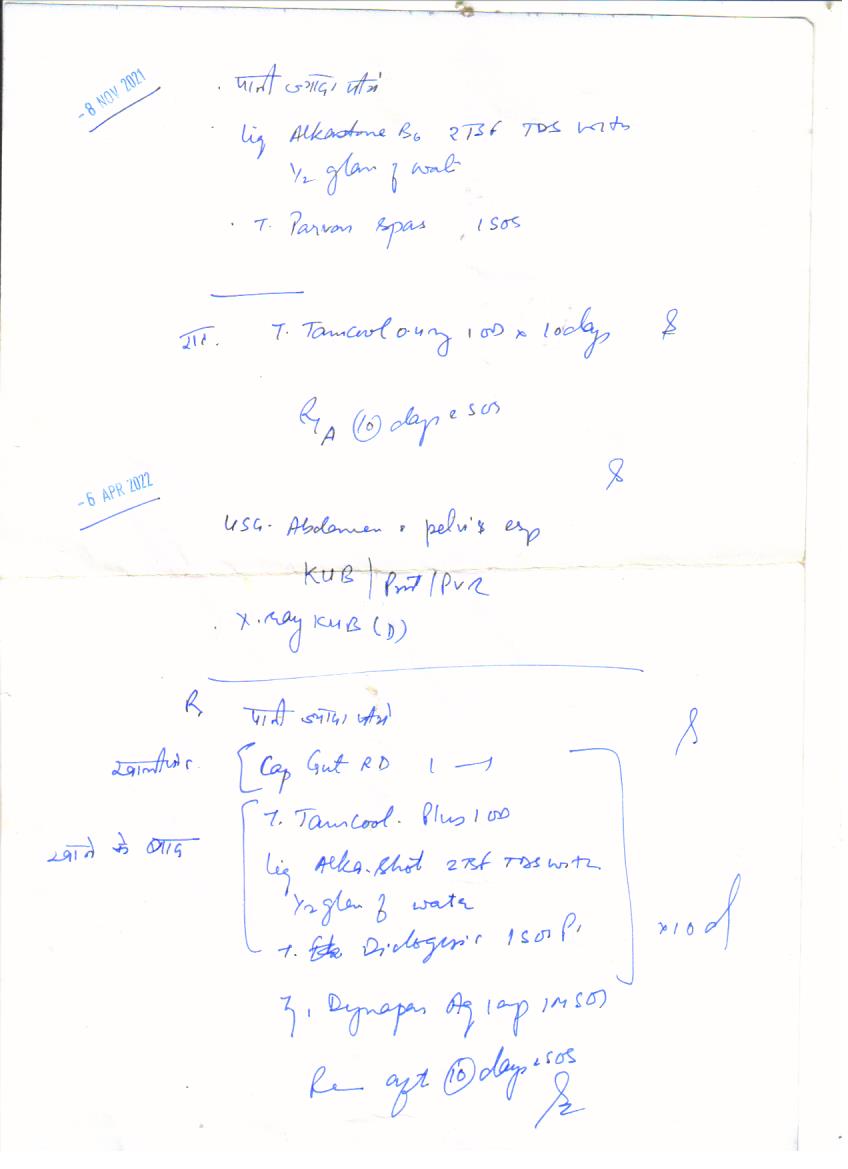 -8 NOV 2021
. पानी ज्यादा पीयें
. liq Alkastone B6 2TSF TDS with
1/2 glass of water
. T. Parvon Spas , 1 SOS
T. Tamcool 0.4mg 1 OD x 10 days
R/A (10) days e SOS
-6 APR 2022
USG. Abdomen & pelvis esp
KUB / Prost / PVR
. X.ray KUB (D)
R पानी ज्यादा पीयें
[Cap Gut RD 1 —
खाने के बाद
T. Tamcool. Plus 1 OD
liq Alka.Shot 2TSF TDS with
1/2 glass of water
T. Diclogesic 1 SOS
x 10 d
Dynapar Aq 1 amp IM SOS
Re aft (10) days e SOS